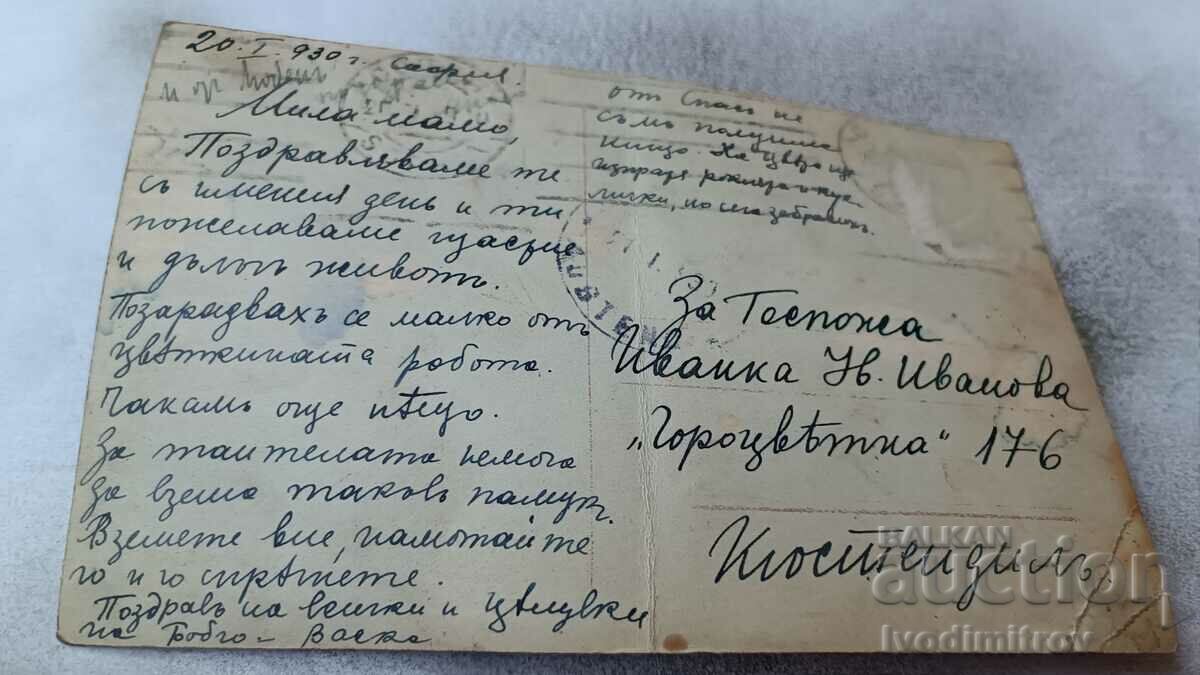 20. I. 930 г. София
Мила мамо,
Поздравляваме те
съ имения день и ти
пожелаваме щастие
и дълъгъ животъ.
Позарадвахъ се малко отъ
цвѣткината работа.
Чакамъ още нѣщо.
За таителата немога
да взема таковъ памукъ.
Вземете вие, намотайте
го и го спрѣтете.
Поздравъ на всички и цѣлувки
на Бобчо - Васка
отъ Спасъ не
съмъ получила
нищо. На Цвѣта ще
изпратя роклята и
но сега забравихъ.
За Госпожа
Иванка Ив. Иванова
„Гороцвѣтна" 176
Кюстендилъ
BALKAN
auction
Ivodimitrov